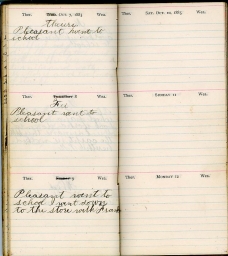 Ther. Wed. Oct 7, 1885 Wea.
Thurs
Pleasant went to
school
Ther. Wea.
Fri
Pleasant went to
school
Ther. Wea.
Pleasant went to
school went down
to the store with Frank
Ther. Sat. Oct. 10, 1885 Wea.
Ther. Sunday 11 Wea.
Ther. Monday 12 Wea.